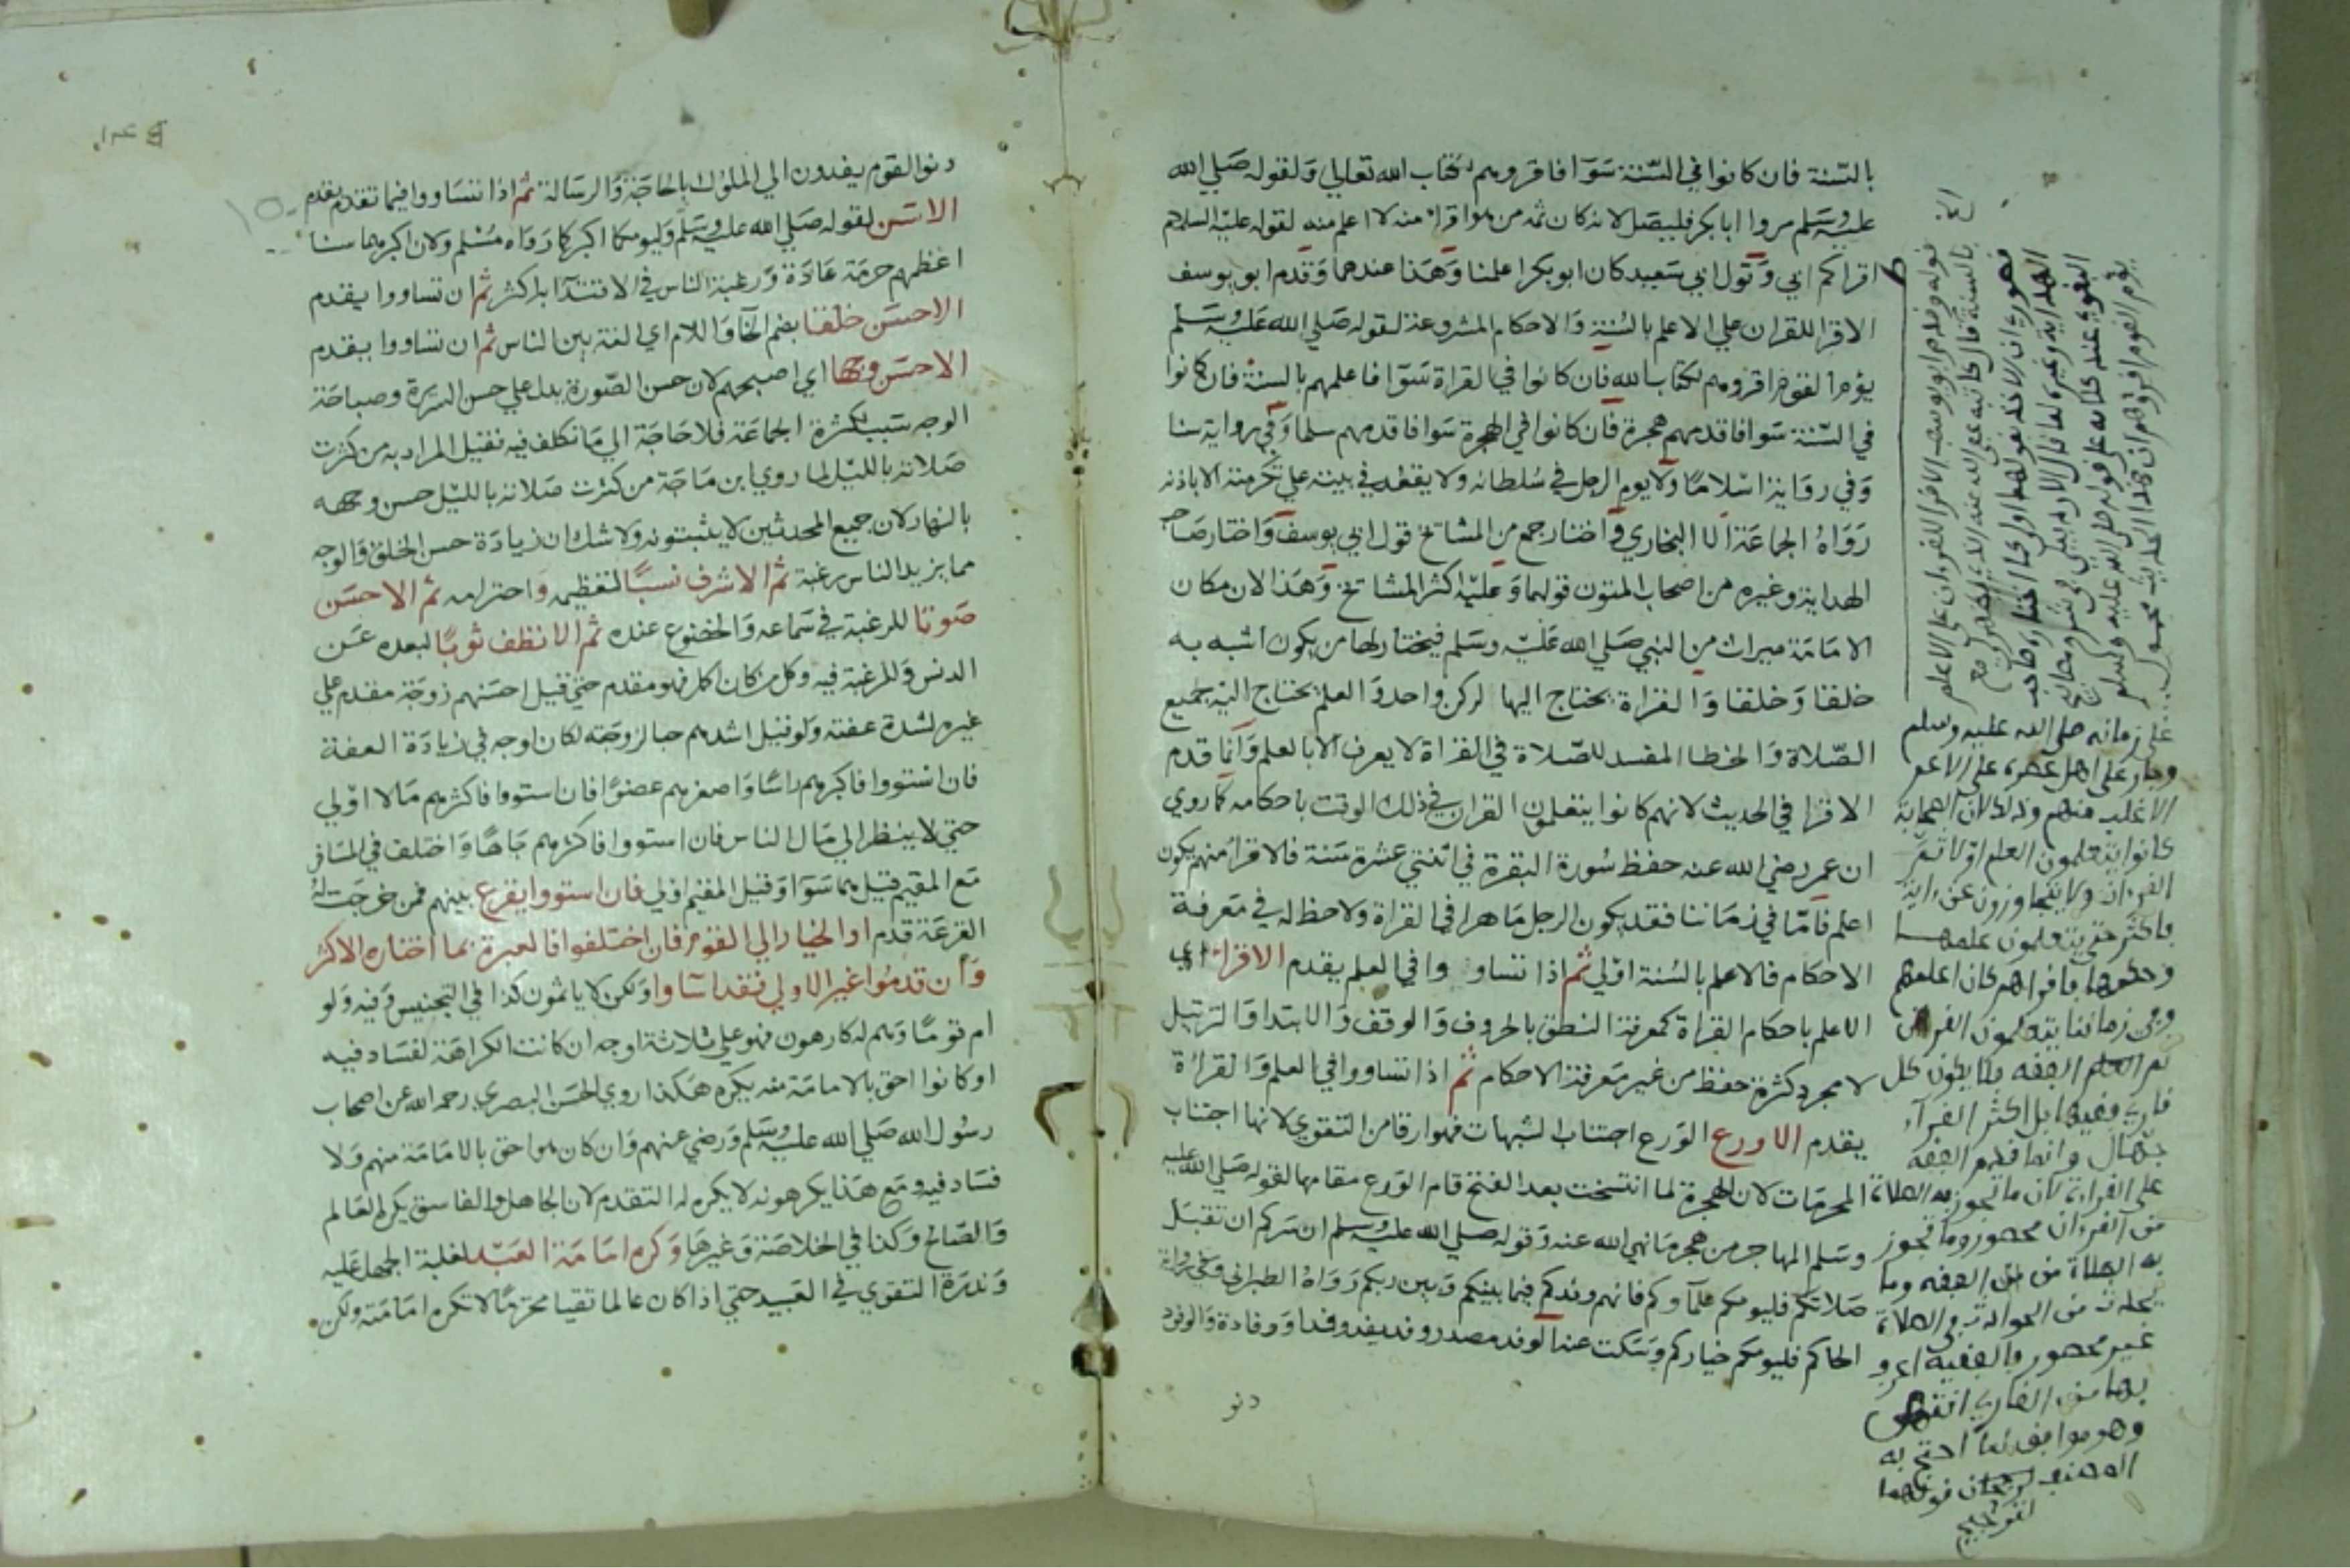 بالسنة فان كانوا في السنة سوا فاقروهم لكتاب الله تعالي ولقوله صلي الله
عليه وسلم مروا ابا بكر فليصل لانه كان ثمه من هوا قرا منه لا اعلم منه لقوله عليه السلام
اقراكم ابي وقول ابي سعيد كان ابو بكر اعلمنا وهذا عندهما وقدم ابو يوسف
الاقرا للقران علي الاعلم بالسنة والاحكام المشروعة لقوله صلي الله عليه وسلم
يؤم القوم اقروهم لكتاب الله فان كانوا في القراة سوا فاعلمهم بالسنة فان كانوا
في السنة سوا فاقدمهم هجرة فان كانوا في الهجرة سوا فاقدمهم سلما وفي رواية سنا
وفي رواية اسلاما ولا يوم الرجل في سلطانه ولا يقعد في بيته علي تكرمته الا باذنه
رواه الجماعة الا البخاري واختار جمع من المشائخ قول ابي يوسف واختار صاحب
الهداية وغيره من اصحاب المتون قولهما وعليه اكثر المشائخ وهذا لان مكان
الامامة ميراث من النبي صلي الله عليه وسلم فيختار لها من يكون اشبه به
خلقا وخلقا والقراة يحتاج اليها لركن واحد والعلم يحتاج اليه جميع
الصلاة والخطا المفسد للصلاة في القراة لا يعرف الا بالعلم وانما قدم
الاقرا في الحديث لانهم كانوا يتعلمون القران في ذلك الوقت باحكامه كما روي
ان عمر رضي الله عنه حفظ سورة البقرة في اثنتي عشرة سنة فالاقرا منهم يكون
اعلم فاما في زماننا فقد يكون الرجل ماهرا في القراة ولا حظ له في معرفة
الاحكام فالاعلم بالسنة اولي ثم اذا تساووا في العلم يقدم الاقرا اي
الاعلم باحكام القراة كمعرفة النطق بالحروف والوقف والابتدا والترتيل
لا مجرد كثرة حفظ من غير معرفة الاحكام ثم اذا تساووا في العلم والقراة
يقدم الاورع الورع اجتناب الشبهات فهوا رقا من التقوي لانها اجتناب
المحرمات لان الهجرة لما انتسخت بعد الفتح قام الورع مقامها لقوله صلي الله عليه
وسلم المهاجر من هجر ما نهي الله عنه وقوله صلي الله عليه وسلم ان سركم ان تقبل
صلاتكم فليومكم علماوكم فانهم وفدكم فيما بينكم وبين ربكم رواه الطبراني وفي رواية
الحاكم فليومكم خياركم وسكت عنه الوفد مصدر وفد يفد وفدا ووفادة والوفود
دنو
قوله وقدم ابو يوسف الاقرا للقران على الاعلم
بالسنة قال كاتبه عفى الله عنه
الهداية وغيره
يؤم القوم اقرؤهم ان هذا الحديث محمول
على زمانه صلى الله عليه وسلم
الاغلب منهم وذلك لان الصحابة
كانوا يتعلمون العلم اولا ثم
القرءان ولا يتجاوزون عن ءاية
فاكثر حتى يتعلمون علمها
وفي زماننا يتعلمون القرءان
ثم العلم الفقه ولا يكون كل
قارئ فقيها بل اكثر القرآء
جهال وانما قدم الفقه
على القراءة لان ما تجوز به الصلاة
من القرءان محصور وما تجوز
به الصلاة من الفقه وما
يحدث من الحوادث في الصلاة
غير محصور والفقيه اعرف
بها من القارئ انتهى
وهو موافق لما احتج به
المصنف
دنوا لقوم يفدون الي الملوك بالحاجة والرسالة ثم اذا تساووا فيما تقدم يقدم
الاسن لقوله صلي الله عليه وسلم وليومكما اكبركما رواه مسلم ولان اكبرهما سنا
اعظمهم حرمة عادة ورغبة الناس في الاقتدا به اكثر ثم ان تساووا يقدم
الاحسن خلقا بضم الخا واللام اي الفة بين الناس ثم ان تساووا يقدم
الاحسن وجها اي اصبحهم لان حسن الصورة يدل علي حسن السيرة وصباحة
الوجه سبب لكثرة الجماعة فلا حاجة الي ما تكلف فيه فقيل المراد به من كثرت
صلاته بالليل لما روي ابن ماجة من كثرت صلاته بالليل حسن وجهه
بالنهار لان جميع المحدثين لا يثبتونه ولا شك ان زيادة حسن الخلق والوجه
مما يزيد الناس رغبة ثم الاشرف نسبا لتعظيمه واحترامه ثم الاحسن
صوتا للرغبة في سماعه والخضوع عنده ثم الانظف ثوبا لبعده عن
الدنس وللرغبة فيه وكل من كان اكمل فهو مقدم حتي قيل احسنهم زوجة مقدم علي
غيره لشدة عفته ولو قيل اشدهم حبا لزوجته لكان اوجه في زيادة العفة
فان استووا فاكبرهم راسا واصغرهم عضوا فان استووا فاكثرهم مالا اولي
حتي لا ينظر الي مال الناس فان استووا فاكثرهم جاها واختلف في المسافر
مع المقيم قيل هما سوا وقيل المقيم اولي فان استووا يقرع بينهم فمن خرجت له
القرعة قدم اوالخيار الي القوم فان اختلفوا فالعبرة بما اختاره الاكثر
وان قدموا غير الاولي فقد اساوا ولكن لا ياثمون كذا في التجنيس وفيه ولو
ام قوما وهم له كارهون فهو علي ثلاثة اوجه ان كانت الكراهة لفساد فيه
او كانوا احق بالامامة منه يكره هكذا روي الحسن البصري رحمه الله عن اصحاب
رسول الله صلي الله عليه وسلم ورضي عنهم وان كان هوا حق بالامامة منهم ولا
فساد فيه ومع هذا يكرهونه لا يكره له التقدم لان الجاهل والفاسق يكره العالم
والصالح وكذا في الخلاصة وغيرها وكره امامة العبد لغلبة الجهل عليه
وندرة التقوي في العبيد حتي اذا كان عالما تقيا محترما لا تكره امامته ولكن